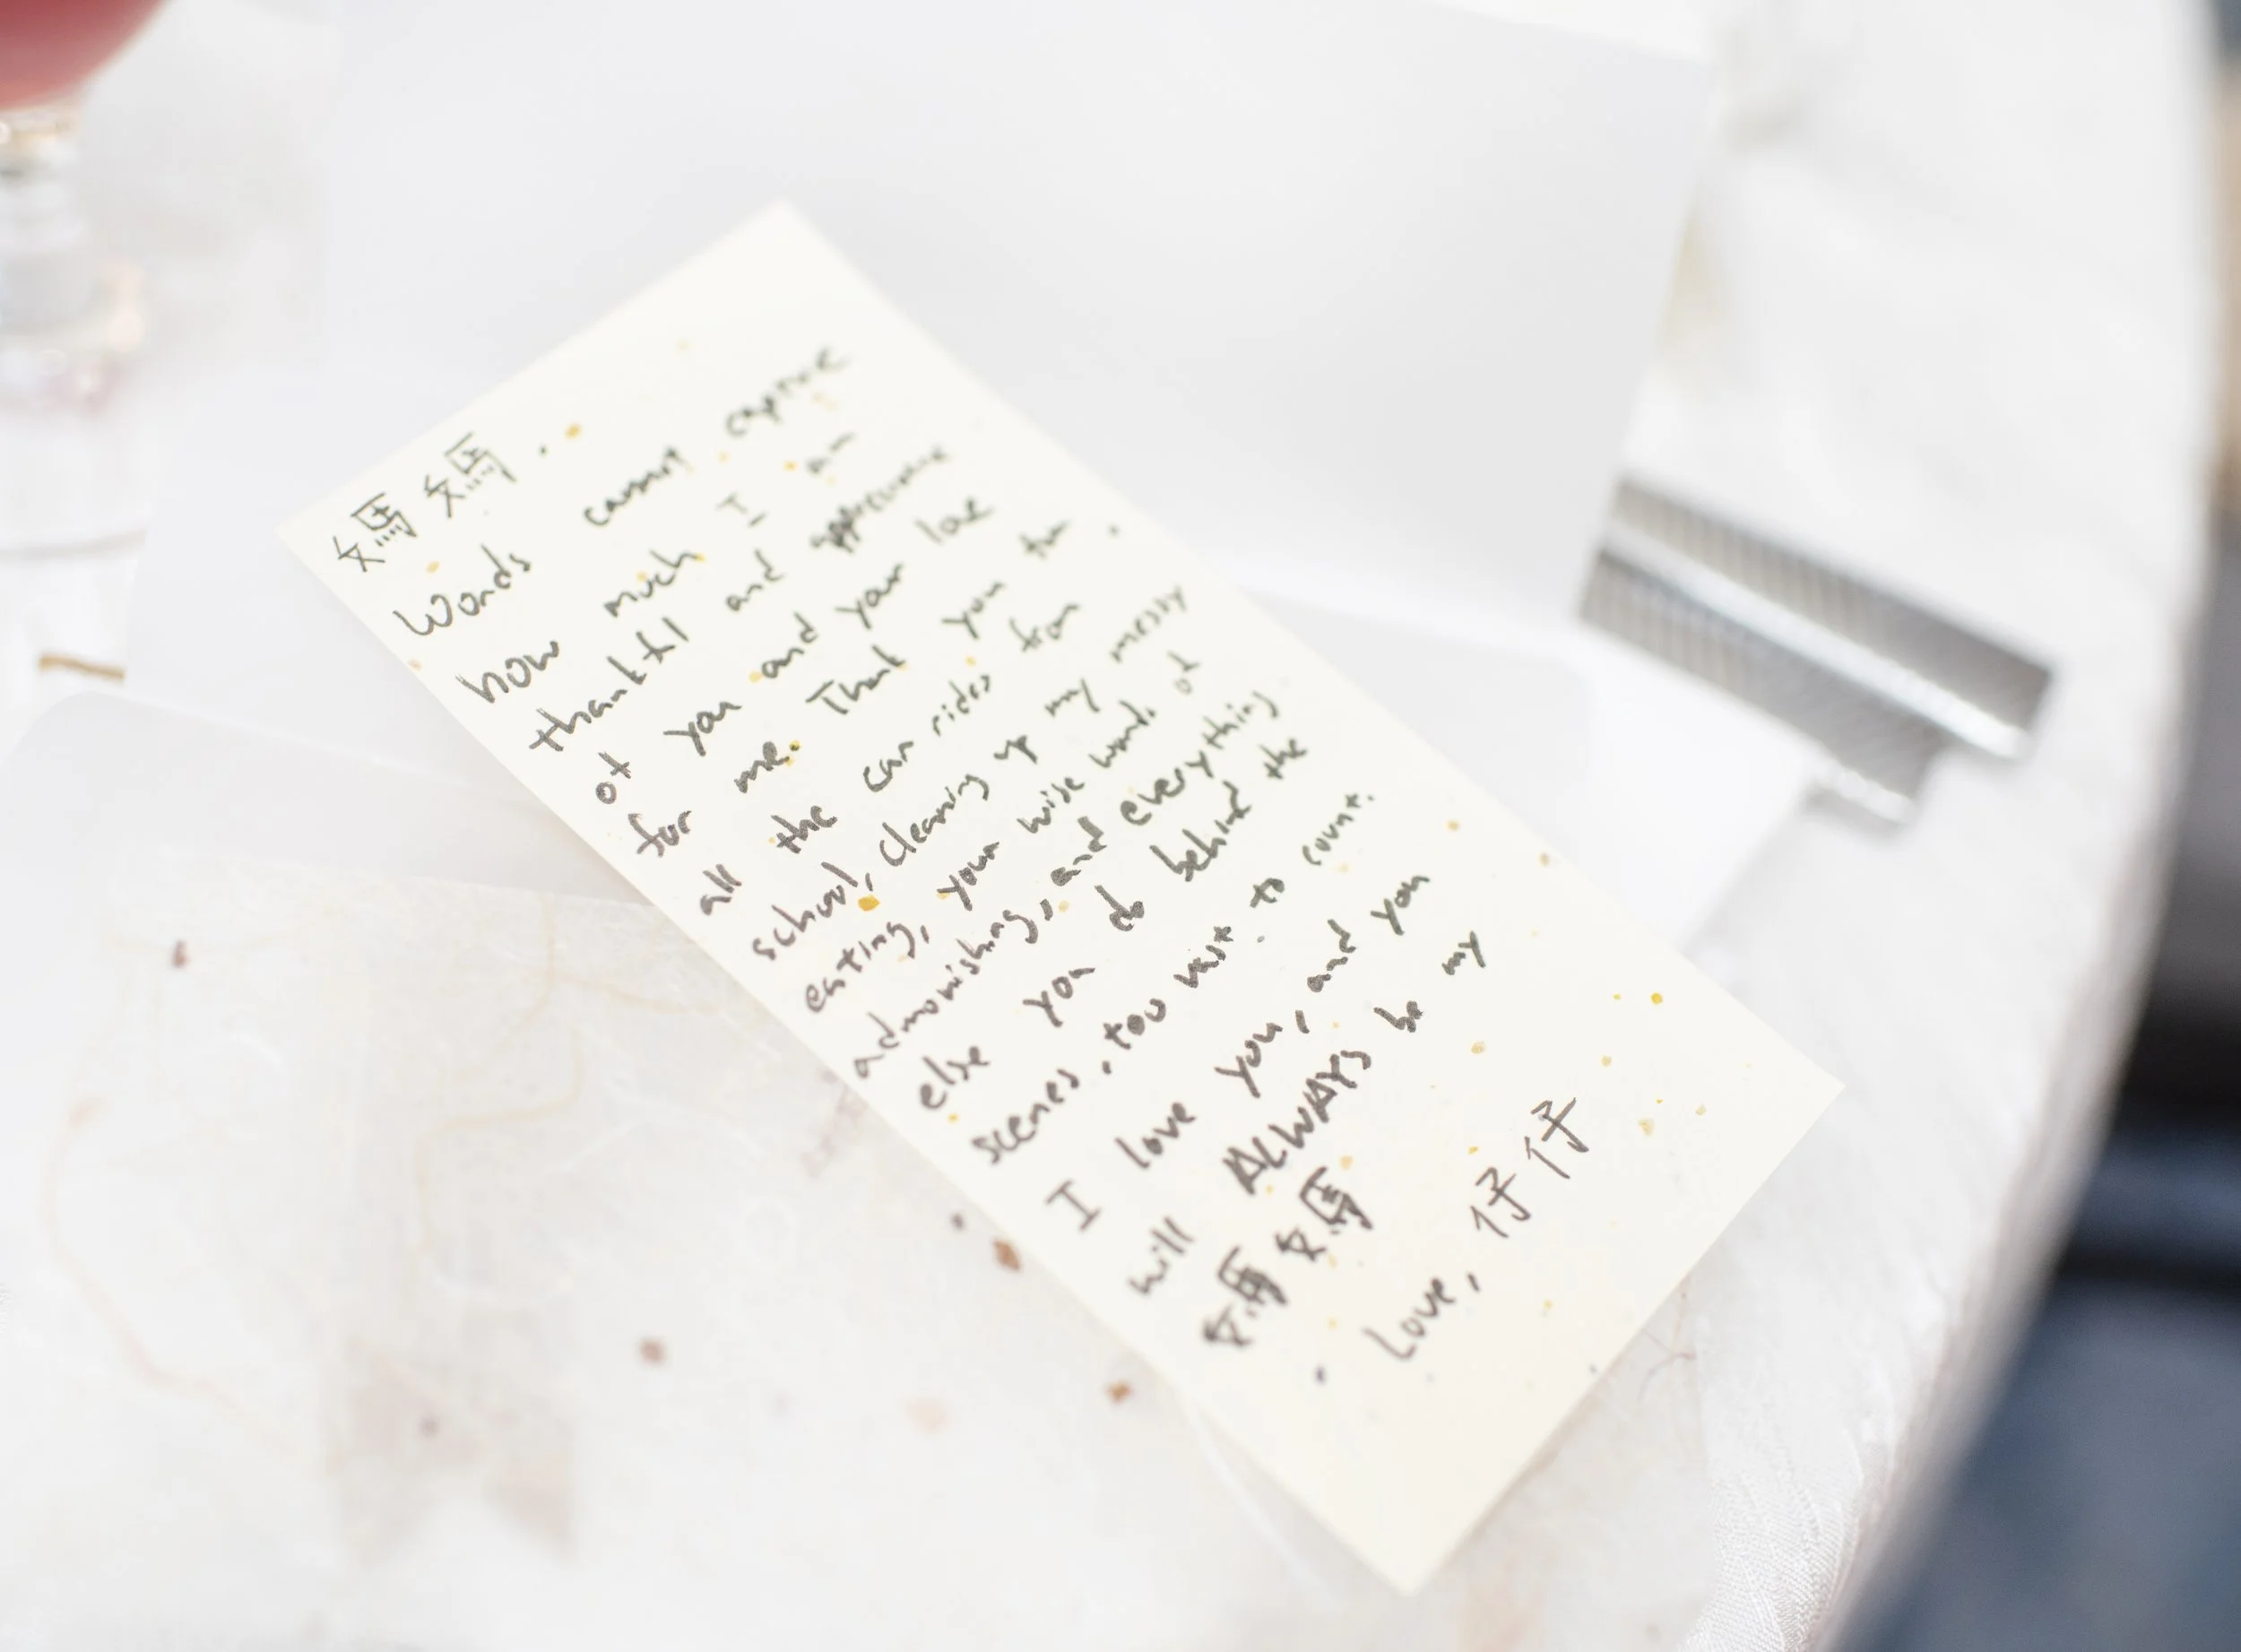 媽媽.
Words cannot capture
how much I am
thankful and appreciative
of you and your love
for me. Thank you for
all the car rides from
school, cleaning up my messy
eating, your wise words of
admonishing, and everything
else you do behind the
scenes, too vast to count.
I love you, and you
will ALWAYS be my
媽媽
Love, 仔仔